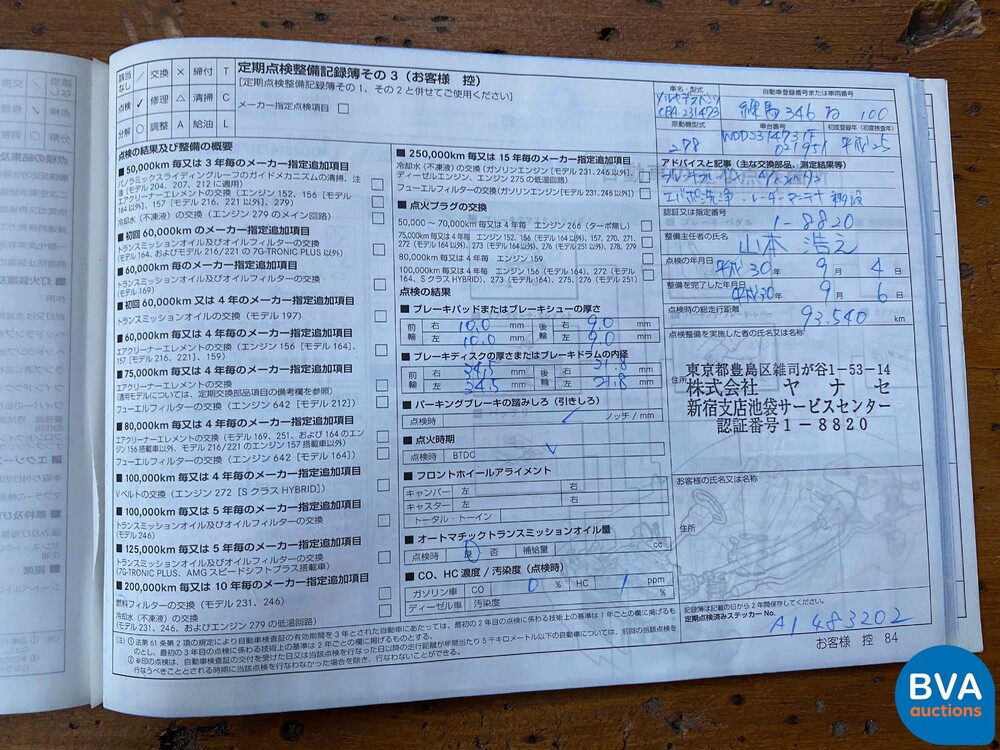 該当なし ／ 交換 × 締付 T
点検 ✓ 修理 △ 清掃 C
分解 ○ 調整 A 給油 L
定期点検整備記録簿その3（お客様 控）
[定期点検整備記録簿その1、その2と併せてご使用ください]
メーカー指定点検項目 □
点検の結果及び整備の概要
■ 50,000km 毎又は 3 年毎のメーカー指定追加項目
パノラミックスライディングルーフのガイドメカニズムの清掃、注油（モデル 204、207、212 に適用）
エアクリーナーエレメントの交換（エンジン 152、156 [モデル 164以外]、157 [モデル 216、221 以外]、279）
冷却水（不凍液）の交換（エンジン 279 のメイン回路）
■ 初回 60,000km 毎のメーカー指定追加項目
トランスミッションオイル及びオイルフィルターの交換
（モデル 164、およびモデル 216/221 の 7G-TRONIC PLUS 以外）
■ 60,000km 毎のメーカー指定追加項目
トランスミッションオイル及びオイルフィルターの交換
（モデル 169）
■ 初回 60,000km 又は 4 年毎のメーカー指定追加項目
トランスミッションオイルの交換（モデル 197）
■ 60,000km 又は 4 年毎のメーカー指定追加項目
エアクリーナーエレメントの交換（エンジン 156 [モデル 164]、
157 [モデル 216、221]、159）
■ 75,000km 毎又は 4 年毎のメーカー指定追加項目
エアクリーナーエレメントの交換
（適用モデルについては、定期交換部品項目の備考欄を参照）
フューエルフィルターの交換（エンジン 642 [モデル 212]）
■ 80,000km 毎又は 4 年毎のメーカー指定追加項目
エアクリーナーエレメントの交換（モデル 169、251、および 164 のエンジン 156 搭載車以外、モデル 216/221 のエンジン 157 搭載車以外）
フューエルフィルターの交換（エンジン 642 [モデル 164]）
■ 100,000km 毎又は 4 年毎のメーカー指定追加項目
Vベルトの交換（エンジン 272 [S クラス HYBRID]）
■ 100,000km 毎又は 5 年毎のメーカー指定追加項目
トランスミッションオイル及びオイルフィルターの交換
（モデル 246）
■ 125,000km 毎又は 5 年毎のメーカー指定追加項目
トランスミッションオイル及びオイルフィルターの交換
（7G-TRONIC PLUS、AMG スピードシフトプラス搭載車）
■ 200,000km 毎又は 10 年毎のメーカー指定追加項目
燃料フィルターの交換（モデル 231、246）
冷却水（不凍液）の交換
（モデル 231、246、および エンジン 279 の低温回路）
■ 250,000km 毎又は 15 年毎のメーカー指定追加項目
冷却水（不凍液）の交換（ガソリンエンジン[モデル 231、246 以外]、
ディーゼルエンジン、エンジン 275 の低温回路）
フューエルフィルターの交換（ガソリンエンジン[モデル 231、246以外]）
■ 点火プラグの交換
50,000 ～ 70,000km 毎又は 4 年毎 エンジン 266（ターボ無し）
75,000km 又は 4 年毎 エンジン 152、156（モデル 164 以外）、157、270、271、
272（モデル 164 以外）、273（モデル 164 以外）、276（モデル 251 以外）、278、279
80,000km 毎又は 4 年毎 エンジン 159
100,000km 毎又は 4 年毎 エンジン 156（モデル 164）、272（モデル 164、S クラス HYBRID）、273（モデル 164）、275、276（モデル 251）
点検の結果
■ ブレーキパッドまたはブレーキシューの厚さ
前輪 右 10.0 mm 後輪 右 9.0 mm
左 10.0 mm 左 9.0 mm
■ ブレーキディスクの厚さまたはブレーキドラムの内径
前輪 右 34.5 mm 後輪 右 21.8 mm
左 34.5 mm 左 21.8 mm
■ パーキングブレーキの踏みしろ（引きしろ）
点検時 ✓ ノッチ / mm
■ 点火時期 ✓
点検時 BTDC
■ フロントホイールアライメント
キャンバー 左 右
キャスター 左 右
トータル・トーイン
■ オートマチックトランスミッションオイル量
点検時 良 否 補給量 cc
■ CO、HC 濃度 / 汚染度（点検時）
ガソリン車 CO 0 % HC 1 ppm
ディーゼル車 汚染度 %
車名・型式 自動車登録番号または車両番号
メルセデスベンツ
CBA-231473 練馬 346 ね 100
原動機型式 車台番号 初度登録年（初度検査年）
278 平成25
アドバイスと記事（主な交換部品、測定結果等）
エバポ洗浄
認証又は指定番号
1-8820
整備主任者の氏名
山本
点検の年月日
平成30 年 9 月 4 日
整備を完了した年月日
平成30 年 9 月 6 日
点検時の総走行距離
93,540 km
点検整備を実施した者の氏名又は名称
住所
東京都豊島区雑司が谷1-53-14
株式会社 ヤナセ
新宿支店池袋サービスセンター
認証番号1-8820
お客様の氏名又は名称
住所
記録簿は記載の日から 2 年間保存してください。
定期点検済みステッカー No.
A1483202
お客様 控 84
BVA
auctions